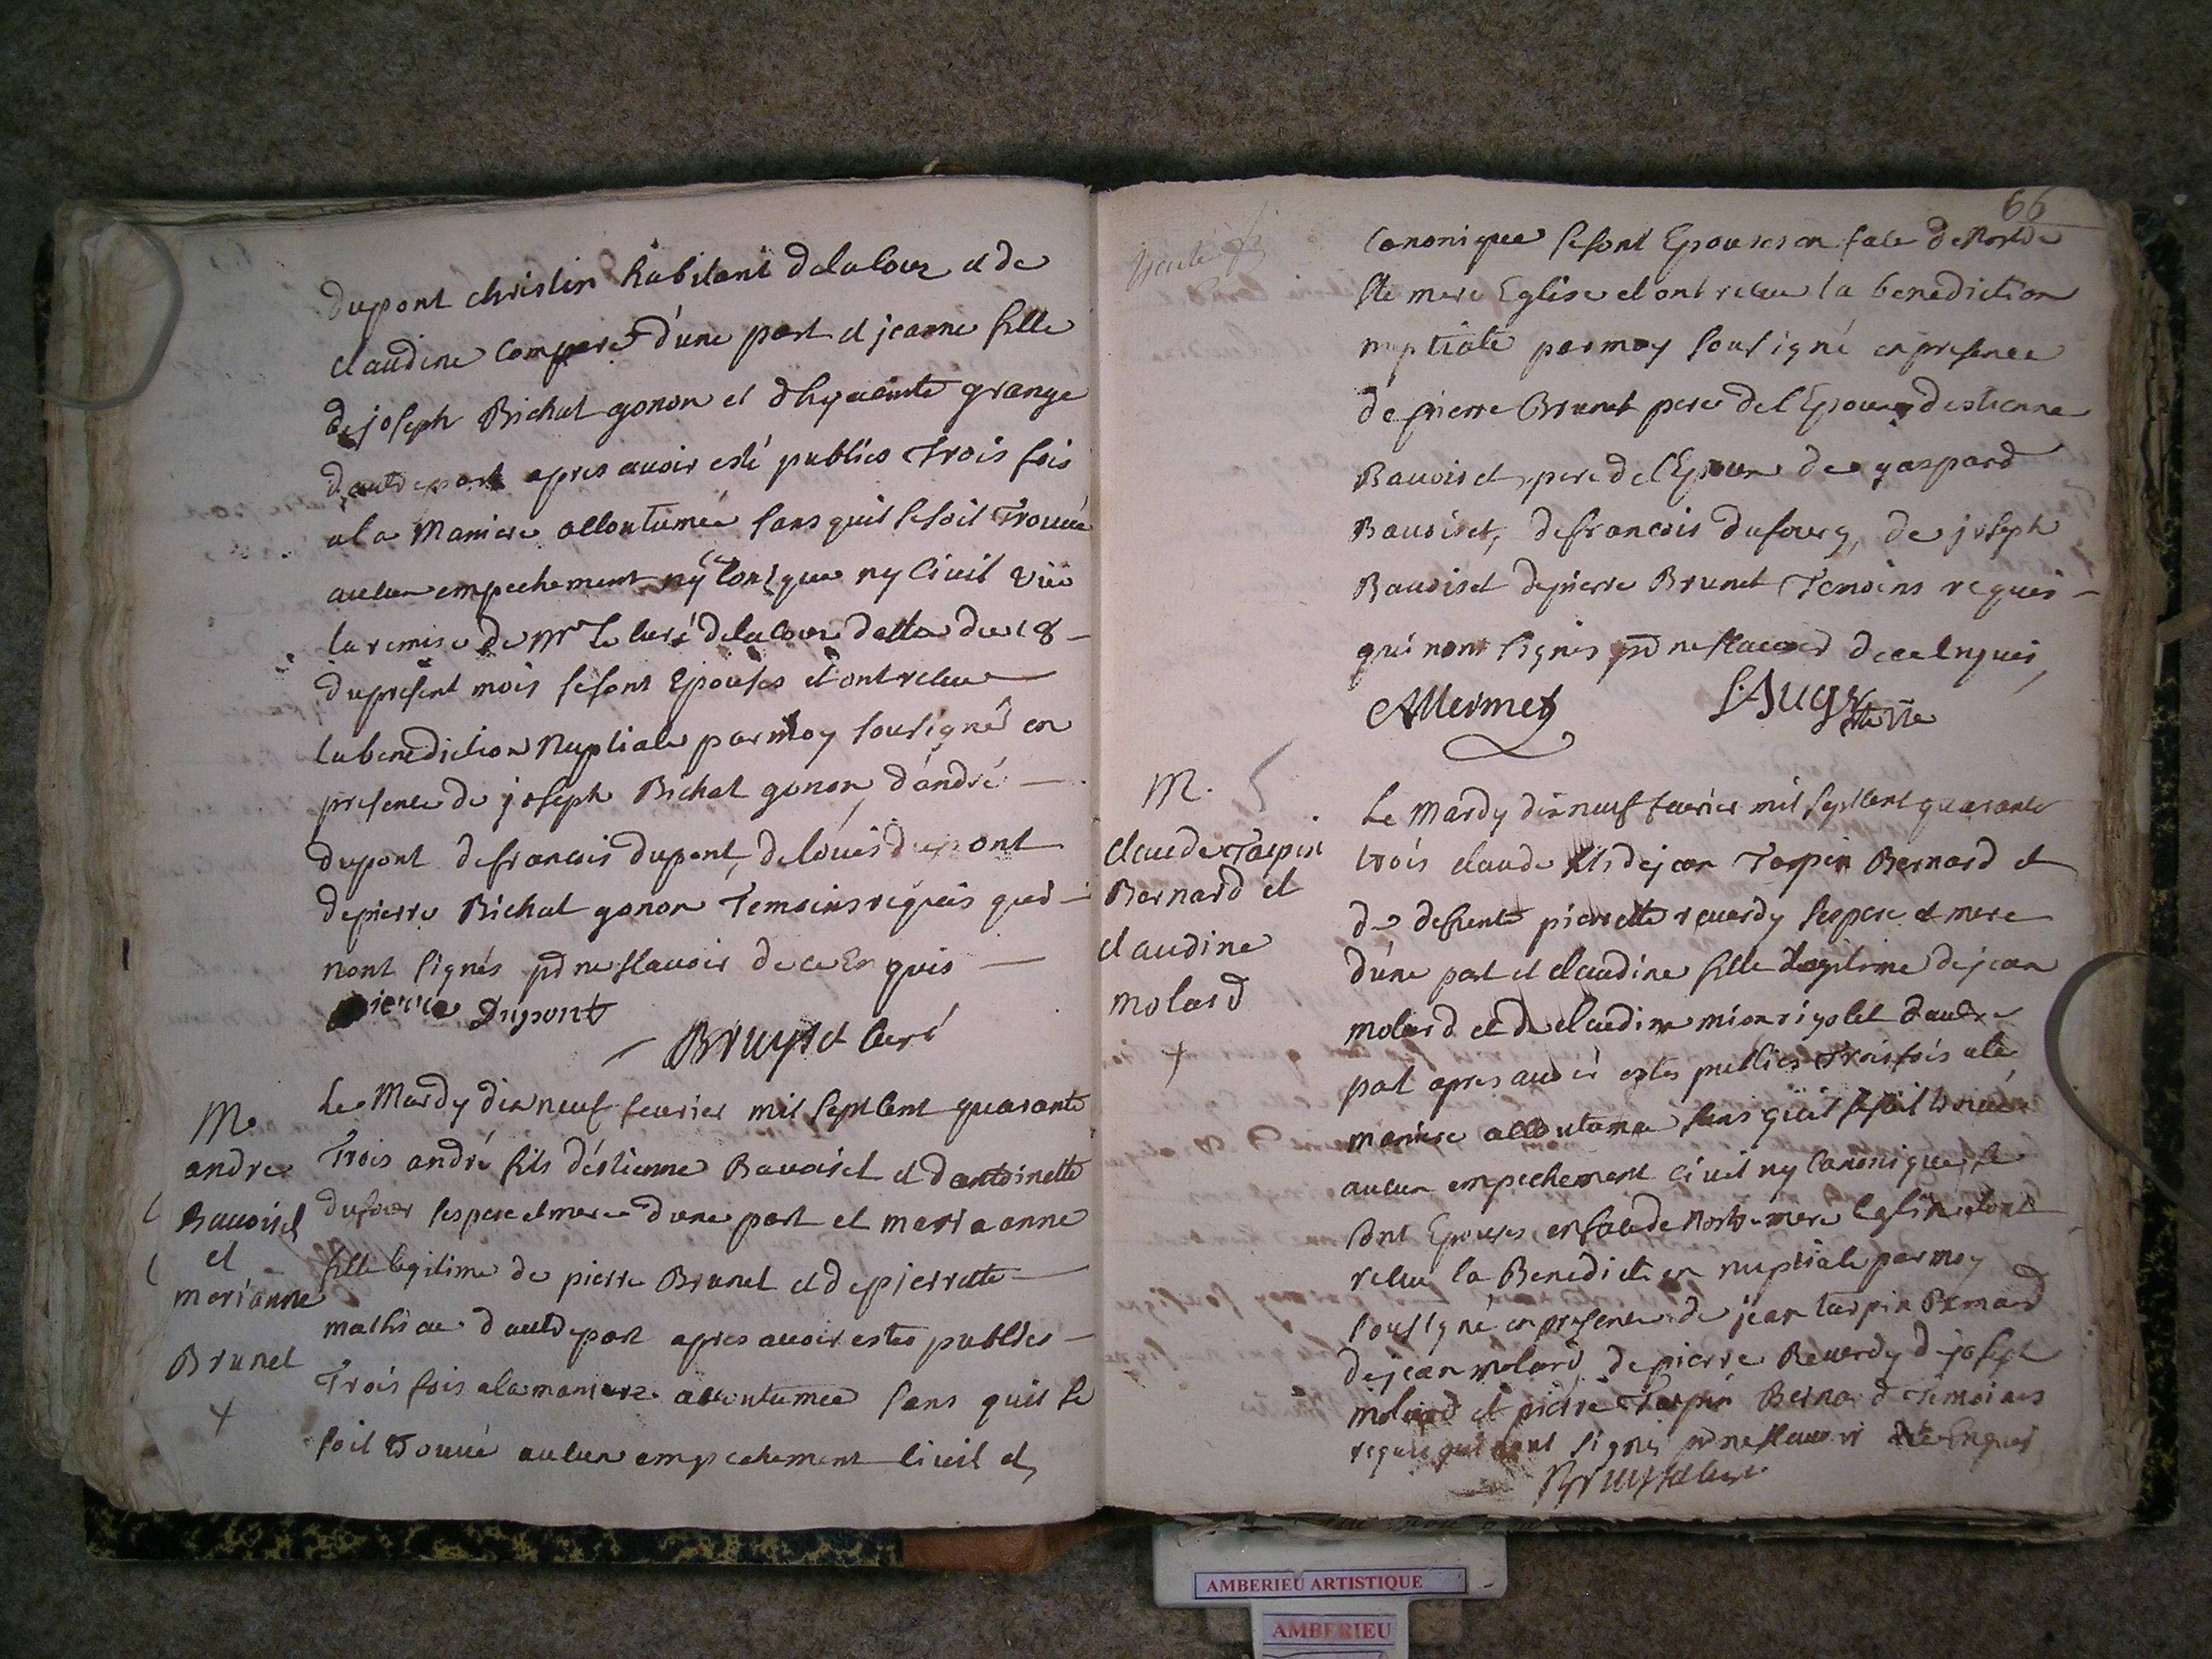 dupont christin habitant delalour et de
claudine compere d'une part et jeanne fille
de joseph Bichat gonon et d'hyacinte grange
d'autre part apres avoir esté publies Trois fois
a la Maniere accoutumée sans quil se soit Trouvé
aucun empechement ny Canonique ny Civil vüe
la remise de Mr le curé delalour datte du 18
du present mois se sont Epouses et ont receu
la benediction Nuptiale par moy sousigné en
presence de joseph Bichat gonon d'andré
dupont de francois dupont, de loüis dupont
de pierre Bichat gonon Temoins requis qui
nont signés pr ne scavoir de ce Enquis
pierre Dupont
Bruyset curé
M.
andre
Bauoiset
et
marianne
Brunet
Le Mardy dix neuf feurier mil sept cent quarante
Trois andré fils d'éstienne Bauoiset et d'antoinette
dufour ses pere et mere d'une part et marianne
fille legitime de pierre Brunet et de pierrette
mathieu d'autre part apres avoir estes publies
Trois fois a la maniere accoutumee sans quil se
soit trouvé aucun empechement civil et
66
Canonique se sont Epouses en face de Nostre
Ste mere Eglise et ont receu la benediction
nuptiale par moy sousigné en presence
de pierre Brunet pere de l'Epouse d'estienne
Bauoiset pere de l'Epoux de gaspard
Bauoiset, de francois dufour, de joseph
Bauoiset de pierre Brunet Temoins requis
qui nont signés pr ne scavoir de ce enquis
AMermet
M.
claude Tarpin
Bernard et
claudine
molard
Le Mardy dix neuf feurier mil sept cent quarante
trois claude fils de jean Tarpin Bernard et
de defunte pierrette reuerdy ses pere et mere
d'une part et claudine fille legitime de jean
molard et de claudine mion rigolet d'autre
part apres avoir estes publies Trois fois a la
maniere accoutumée sans quil se soit trouvé
aucun empechement civil ny Canonique se
sont Epouses en face de Nostre mere Eglise et ont
receu la Benediction nuptiale par moy
sousigné en presence de jean tarpin Bernard
de jean molard de pierre Reuerdy de joseph
molard et pierre Tarpin Bernard Temoins
requis qui nont signés pr ne scavoir de ce Enquis
Bruyset curé
AMBERIEU ARTISTIQUE
AMBERIEU